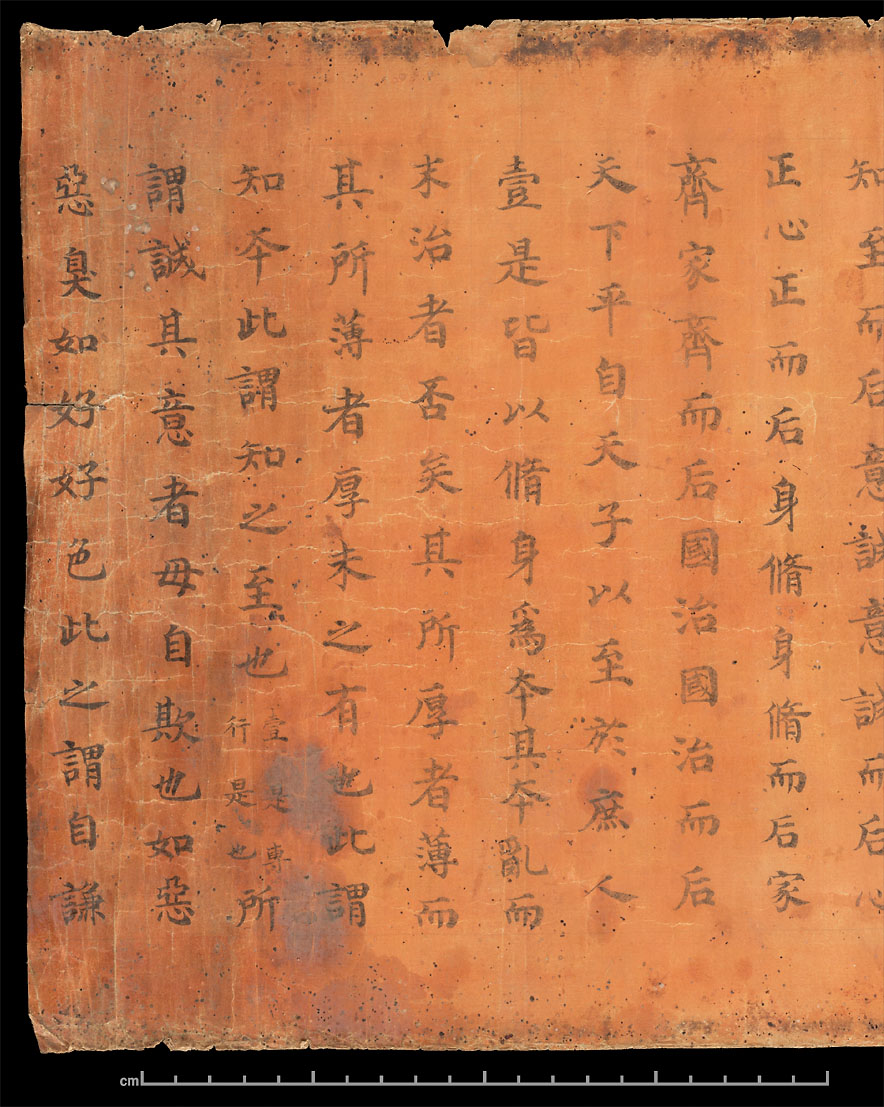 知至而后意誠意誠而后心
正心正而后身脩身脩而后家
齊家齊而后國治國治而后
天下平自天子以至於庶人
壹是皆以脩身爲夲其夲亂而
末治者否矣其所厚者薄而
其所薄者厚未之有也此謂
知夲此謂知之至也壹是專行是也所
謂誠其意者毋自欺也如惡
惡臭如好好色此之謂自謙
cm